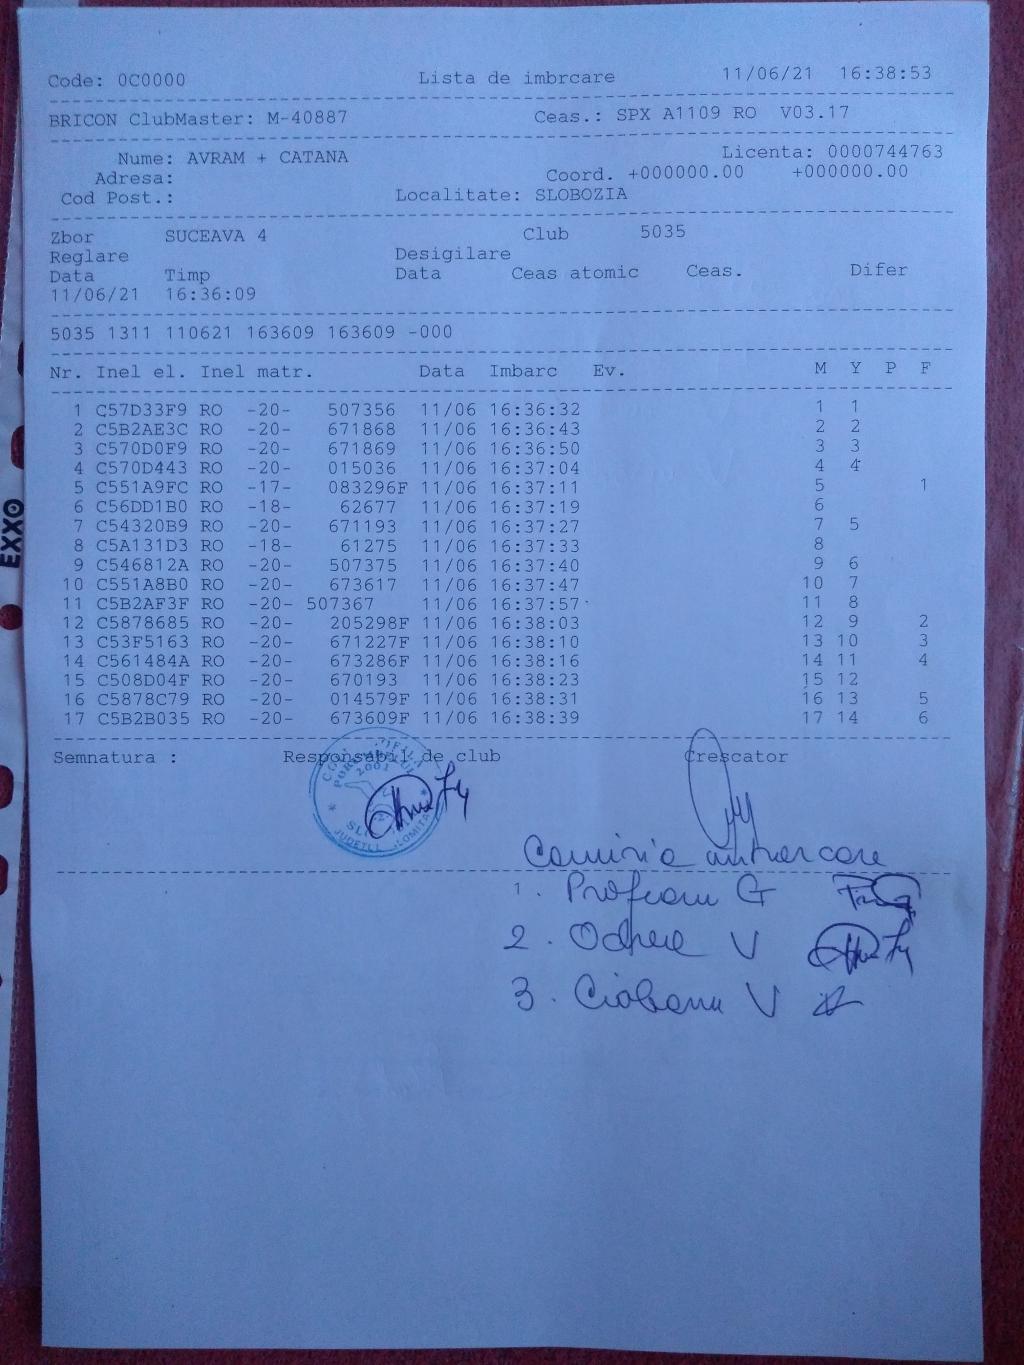 Code: 0C0000 Lista de imbrcare 11/06/21 16:38:53
BRICON ClubMaster: M-40887 Ceas.: SPX A1109 RO V03.17
Nume: AVRAM + CATANA Licenta: 0000744763
Adresa: Coord. +000000.00 +000000.00
Cod Post.: Localitate: SLOBOZIA
Zbor SUCEAVA 4 Club 5035
Reglare Desigilare
Data Timp Data Ceas atomic Ceas. Difer
11/06/21 16:36:09
5035 1311 110621 163609 163609 -000
Nr. Inel el. Inel matr. Data Imbarc Ev. M Y P F
1 C57D33F9 RO -20- 507356 11/06 16:36:32 1 1
2 C5B2AE3C RO -20- 671868 11/06 16:36:43 2 2
3 C570D0F9 RO -20- 671869 11/06 16:36:50 3 3
4 C570D443 RO -20- 015036 11/06 16:37:04 4 4
5 C551A9FC RO -17- 083296F 11/06 16:37:11 5 1
6 C56DD1B0 RO -18- 62677 11/06 16:37:19 6
7 C54320B9 RO -20- 671193 11/06 16:37:27 7 5
8 C5A131D3 RO -18- 61275 11/06 16:37:33 8
9 C546812A RO -20- 507375 11/06 16:37:40 9 6
10 C551A8B0 RO -20- 673617 11/06 16:37:47 10 7
11 C5B2AF3F RO -20- 507367 11/06 16:37:57 11 8
12 C5878685 RO -20- 205298F 11/06 16:38:03 12 9 2
13 C53F5163 RO -20- 671227F 11/06 16:38:10 13 10 3
14 C561484A RO -20- 673286F 11/06 16:38:16 14 11 4
15 C508D04F RO -20- 670193 11/06 16:38:23 15 12
16 C5878C79 RO -20- 014579F 11/06 16:38:31 16 13 5
17 C5B2B035 RO -20- 673609F 11/06 16:38:39 17 14 6
Semnatura : Responsabil de club Crescator
2001
JUDETUL
1.
2. V
3. Ciobanu V
EXXO